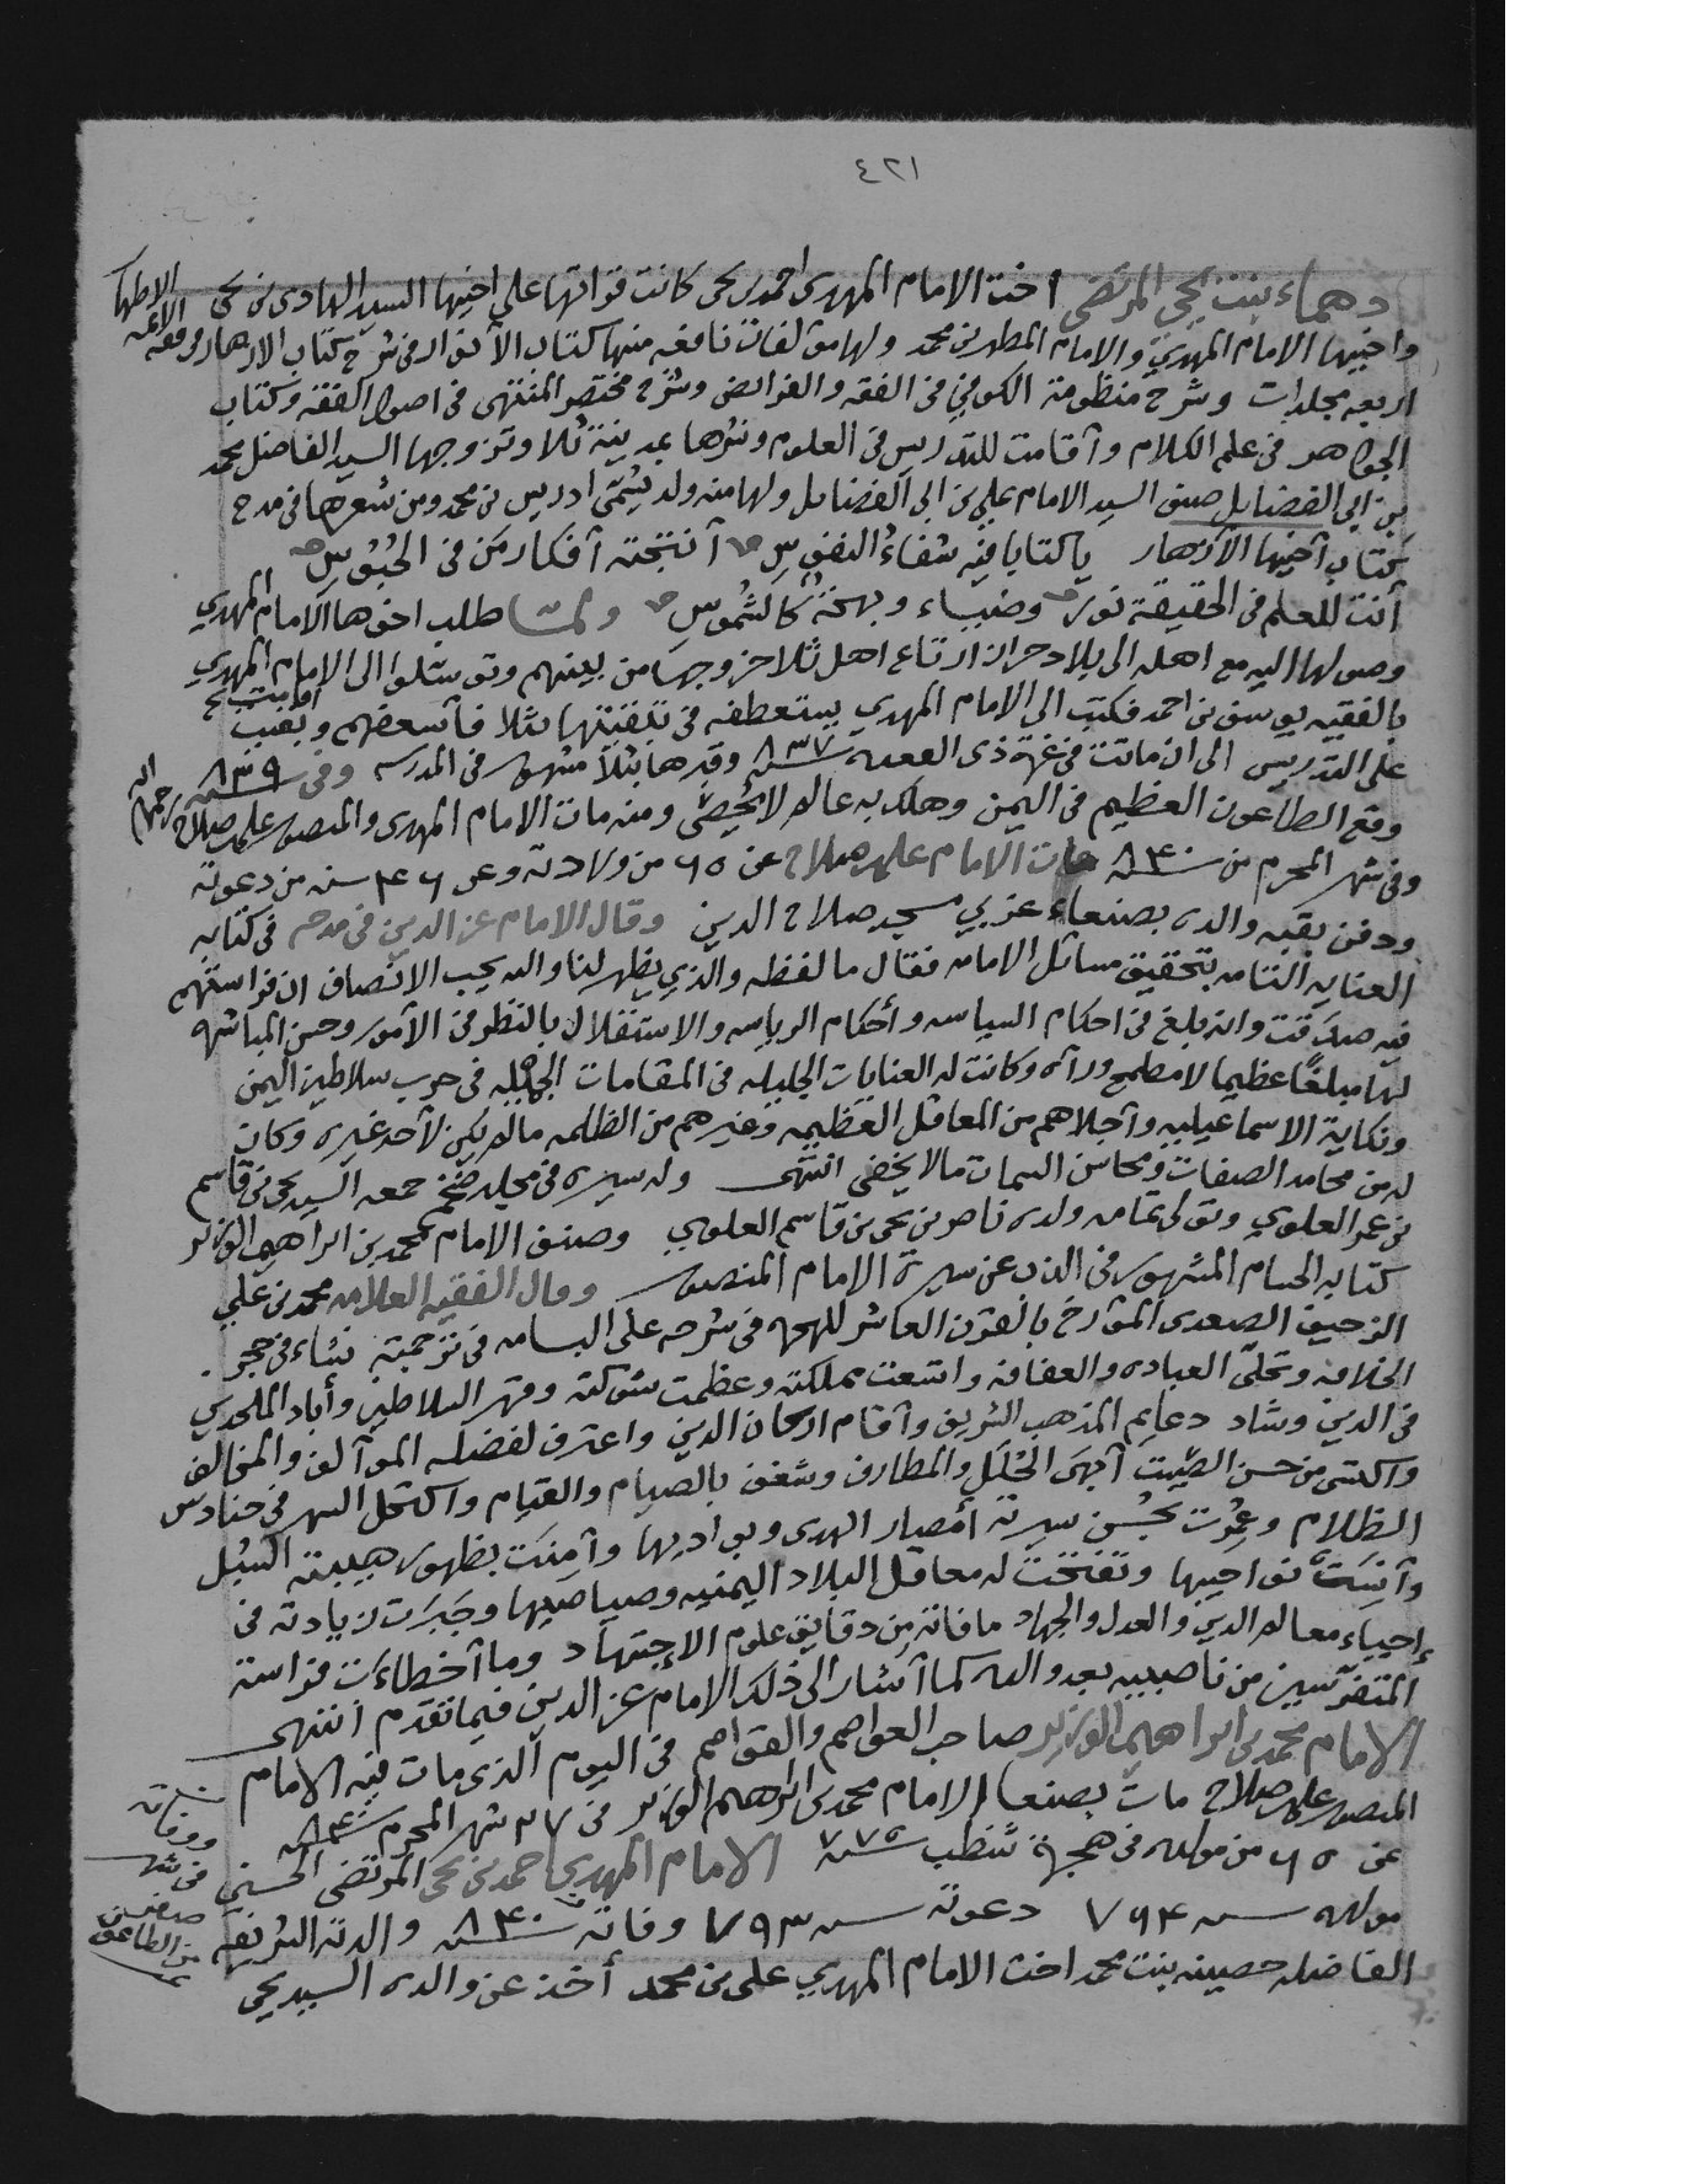 ٤٢١
دهماء بنت يحيى المرتضى اخت الامام المهدى احمد بن يحى كانت قراتها على اخيها السيد الهادى بن يحى
واخيها الامام المهدي والامام المطهر بن محمد ولها مؤلفات نافعه منها كتاب الأنوار في شرح كتاب الازهار في فقه الائمه الاطهار
اربعه مجلدات وشرح منظومة الكوفي في الفقه والفرائض وشرح مختصر المنتهى في اصول الفقه وكتاب
الجواهر في علم الكلام وأقامت للتدريس في العلوم ونشرها بمدينة ثلا وتزوجها السيد الفاضل محمد
بن ابي الفضايل صنو السيد الامام علي بن ابي الفضايل ولها منه ولد يسمّى ادريس بن محمد ومن شعرها في مدح
كتاب أخيها الأزهار يا كتابا فيه شفاءُ النفوسِ أنتجته أفكار من في الحُبُوسِ
أنت للعلم في الحقيقة نورٌ وضياء وبهجةٌ كالشموسِ ولمّا طلب اخوها الامام المهدي
وصولها اليه مع اهله الى بلاد حراز ارتاع اهل ثلا خروجها من بينهم وتوسّلوا الى الامام المهدي
بالفقيه يوسف بن احمد فكتب الى الامام المهدي يستعطفه في تبقيتها بثلا فأسعفهم وبقيت
على التدريس الى ان ماتت في غرة ذى القعده سنة ٨٣٧ وقبرها بثلا مشهور في المدرسه وفي سنة ٨٣٩
وقع الطاعون العظيم في اليمن وهلك به عالم لا يُحصى ومنه مات الامام المهدى والمنصور على بن صلاح رحمهما الله
وفى شهر المحرم من سنة ٨٤٠ مات الامام على بن صلاح عن ٦٥ من ولادته وعن ٤٦ سنه من دعوته
ودفن بقبه والده بصنعاء غربي مسجد صلاح الدين وقال الامام عز الدين في مدحه في كتابه
العنايه التامه بتحقيق مسائل الامامه فقال ما لفظه والذي يظهر لنا والله يحب الانصاف ان فراستهم
فيه صدَقت وانه بلغ في احكام السياسه وأحكام الرياسه والاستقلال بالنظر في الأمور وحسن المباشره
لها مبلغًا عظيما لا مطمح ورآه وكانت له العنايات الجليله في المقامات الجميله في حرب سلاطين اليمن
ونكاية الاسماعيليه وأجلاهم من المعاقل العظيمه وغيرهم من الظلمه مالم يكن لأحد غيره وكان
له من محامد الصفات ومحاسن السمات مالا يخفى انتهى وله سيره في مجلد ضخم جمعه السيد يحى بن قاسم
بن عمر العلوي وتولى تمامه ولده ناصر بن يحى بن قاسم العلوي وصنف الامام محمد بن ابراهيم الوزير
كتابه الحسام المشهور في الذب عن سيرة الامام المنصور وقال الفقيه العلامه محمد بن علي
الزحيف الصعدى المؤرخ بالقرن العاشر للهجره في شرحه على البسامه في ترجمته نشاء في حجر
الخلافه وتحلّى العباده والعفافه واتسعت مملكته وعظمت شوكته وقهر السلاطين وأباد الملحدين
في الدين وشاد دعايم المذهب الشريف وأقام اركان الدين واعترف لفضله الموآلف والمخالف
واكتسى من حسن الصّيت أبهَى الحُلَلِ والمطارف وشغف بالصيام والقيام واكتحل السهر في حنادس
الظلام وعُمِرَت بحُسن سيرته أمصار الهدى وبواديها وأمِنَت بظهور هيبته السُبُل
وأنِسَت نواحيها وتفتّحت له معاقل البلاد اليمنيه وصياصيها وجَبَرَت زيادته في
إحياء معالم الدين والعدل والجهاد مافاته من دقايق علوم الإجتهاد وما أخطاءت فراسة
المتفرّسين من ناصبيه بعد والده كما أشار الى ذلك الامام عز الدين فيما تقدّم انتهى
الامام محمد بن ابراهيم الوزير صاحب العواصم والقواصم في اليوم الذى مات فيه الامام
المنصور على بن صلاح مات بصنعا الامام محمد بن ابراهيم الوزير في ٢٧ شهر المحرم سنة ٨٤٠
عن ٦٥ من مولده في هجرة شظب سنة ٧٧٥ الامام المهدي احمد بن يحى المرتضى الحسني
مولده سنه ٧٦٤ دعوته سنه ٧٩٣ وفاته سنة ٨٤٠ والدته الشريفه
ووفاته في شهر صفر من الطاعون
الفاضله حصينه بنت محمد اخت الامام المهدي على بن محمد أخذ عن والده السيد يحي